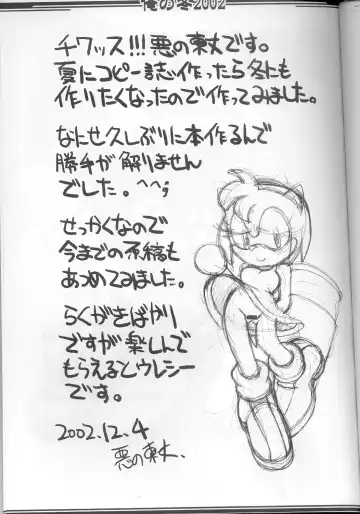 俺の冬2002
チワッス!!!悪の東丈です。
夏にコピー誌作ったら冬にも
作りたくなったので作ってみました。
なにせ久しぶりに本作るんで
勝手が解りません
でした。^^;
せっかくなので
今までの原稿も
あつめてみました。
らくがきばかり
ですが楽しんで
もらえるとウレシー
です。
2002.12.4
悪の東丈.